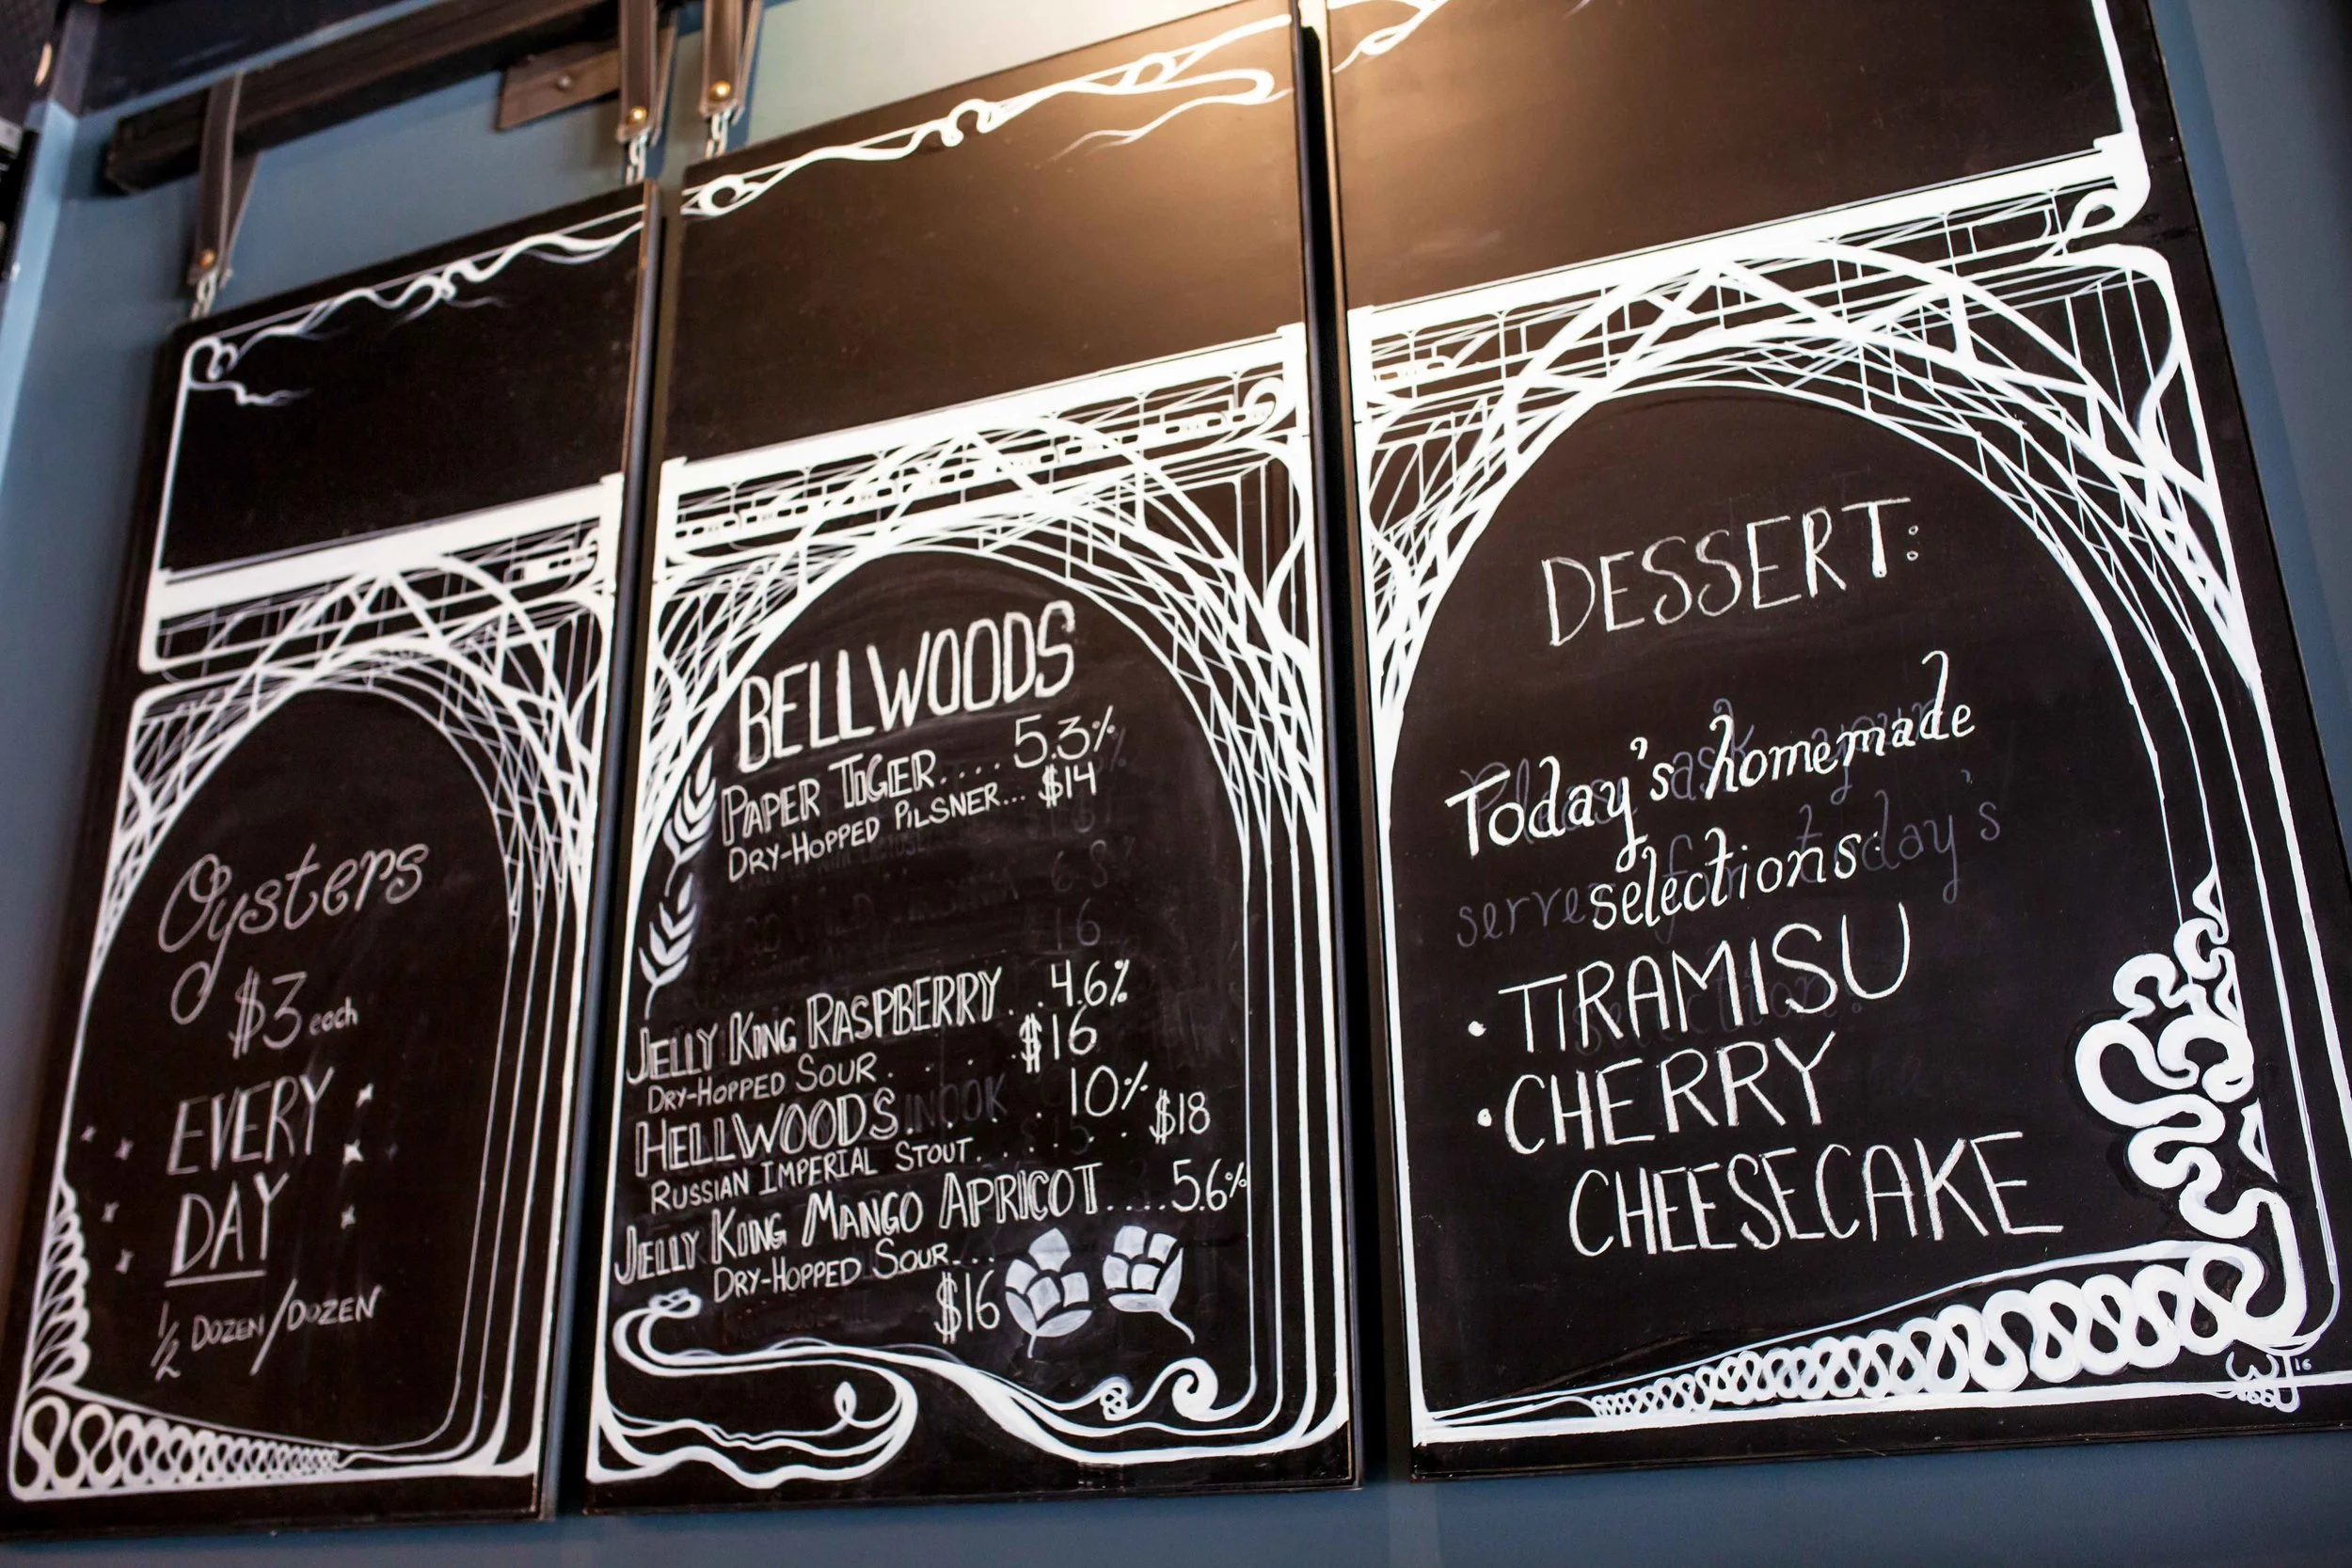 Oysters
$3 each
EVERY
DAY
1/2 DOZEN/DOZEN
BELLWOODS
PAPER TIGER.... 5.3%
DRY-HOPPED PILSNER... $14
JELLY KING RASPBERRY...4.6%
DRY-HOPPED SOUR. . . . $16
HELLWOODS. . . . 10%
RUSSIAN IMPERIAL STOUT. . . . . $18
JELLY KING MANGO APRICOT....5.6%
DRY-HOPPED SOUR...
$16
DESSERT:
Today's homemade
selections:
• TIRAMISU
• CHERRY
CHEESECAKE
16